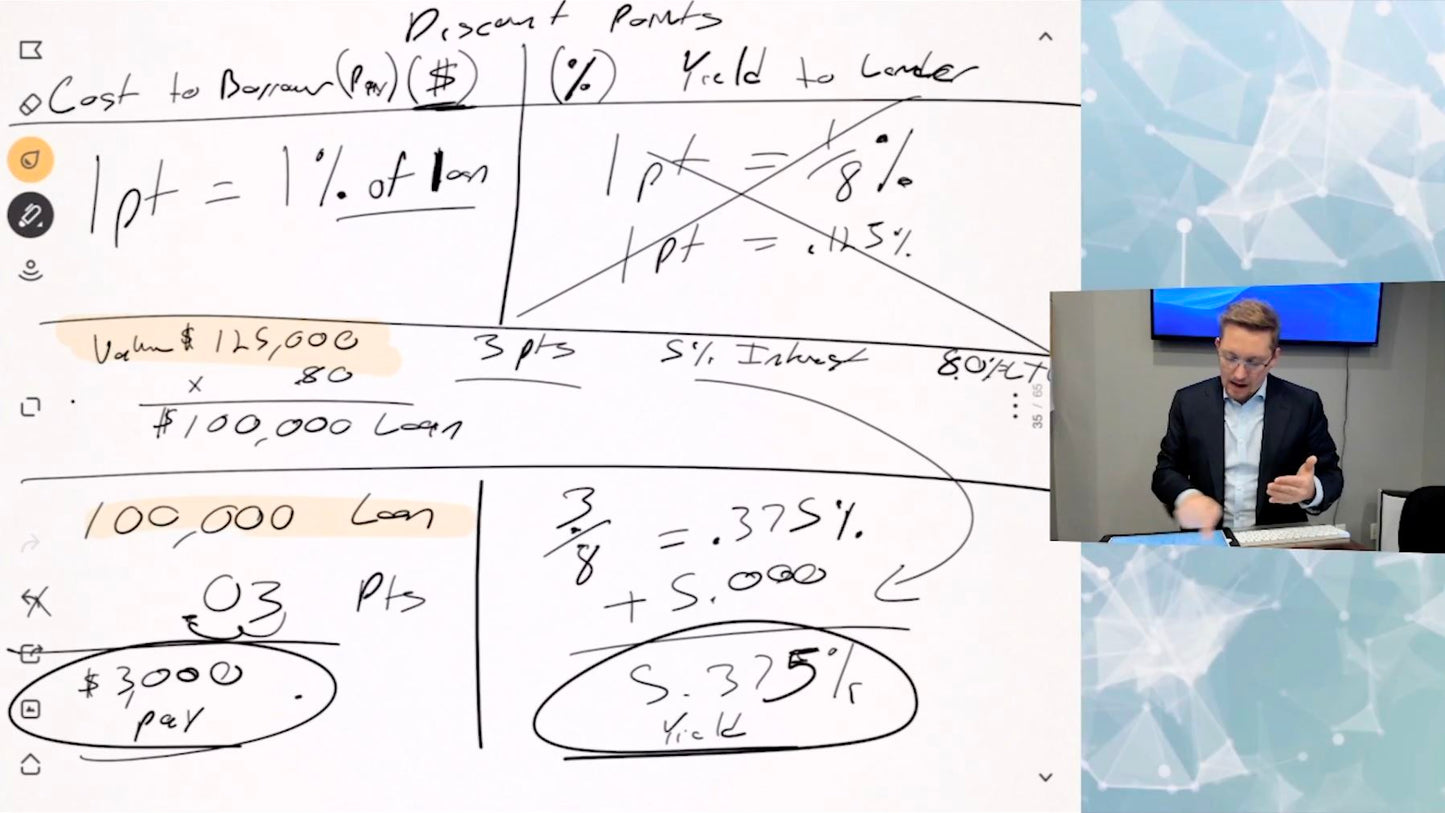 Discount Points
Cost to Borrow (Pay) ($)
(%) Yield to Lender
1 pt = 1% of loan
1 pt = 1/8%
1 pt = .125%
Value $ 125,000
x .80
$100,000 Loan
3 pts
5% Interest
80% LT
35 / 65
100,000 Loan
03 Pts
$3,000
pay
3/8 = .375%
+ 5.000
5.375%
Yield